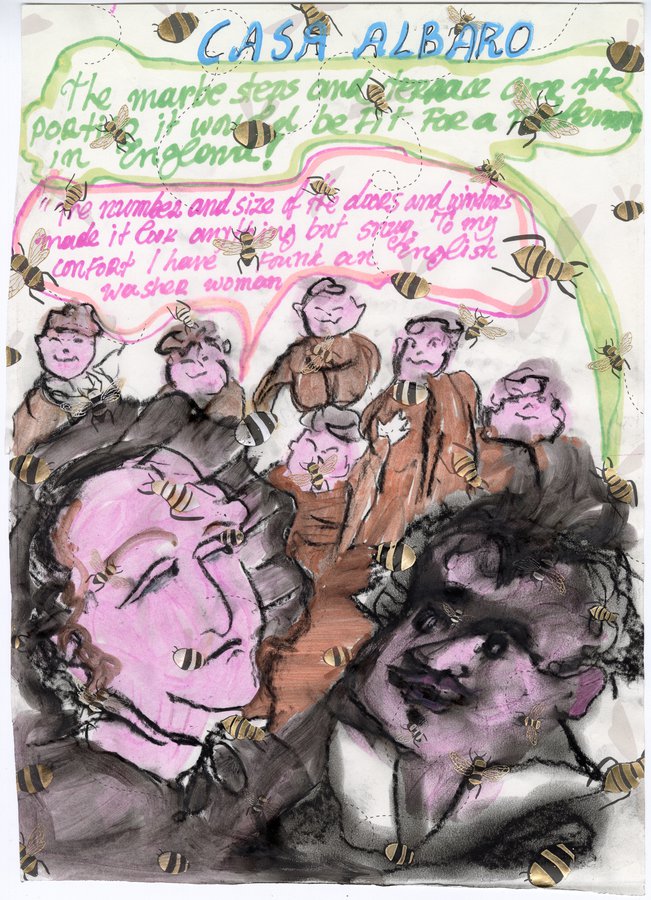 CASA ALBARO
The marbe steps and terrace are the
portico it would be fit for a
in England!
"The number and size of the doors and windows
made it look anything but snug. To my
confort I have found an English
washer woman